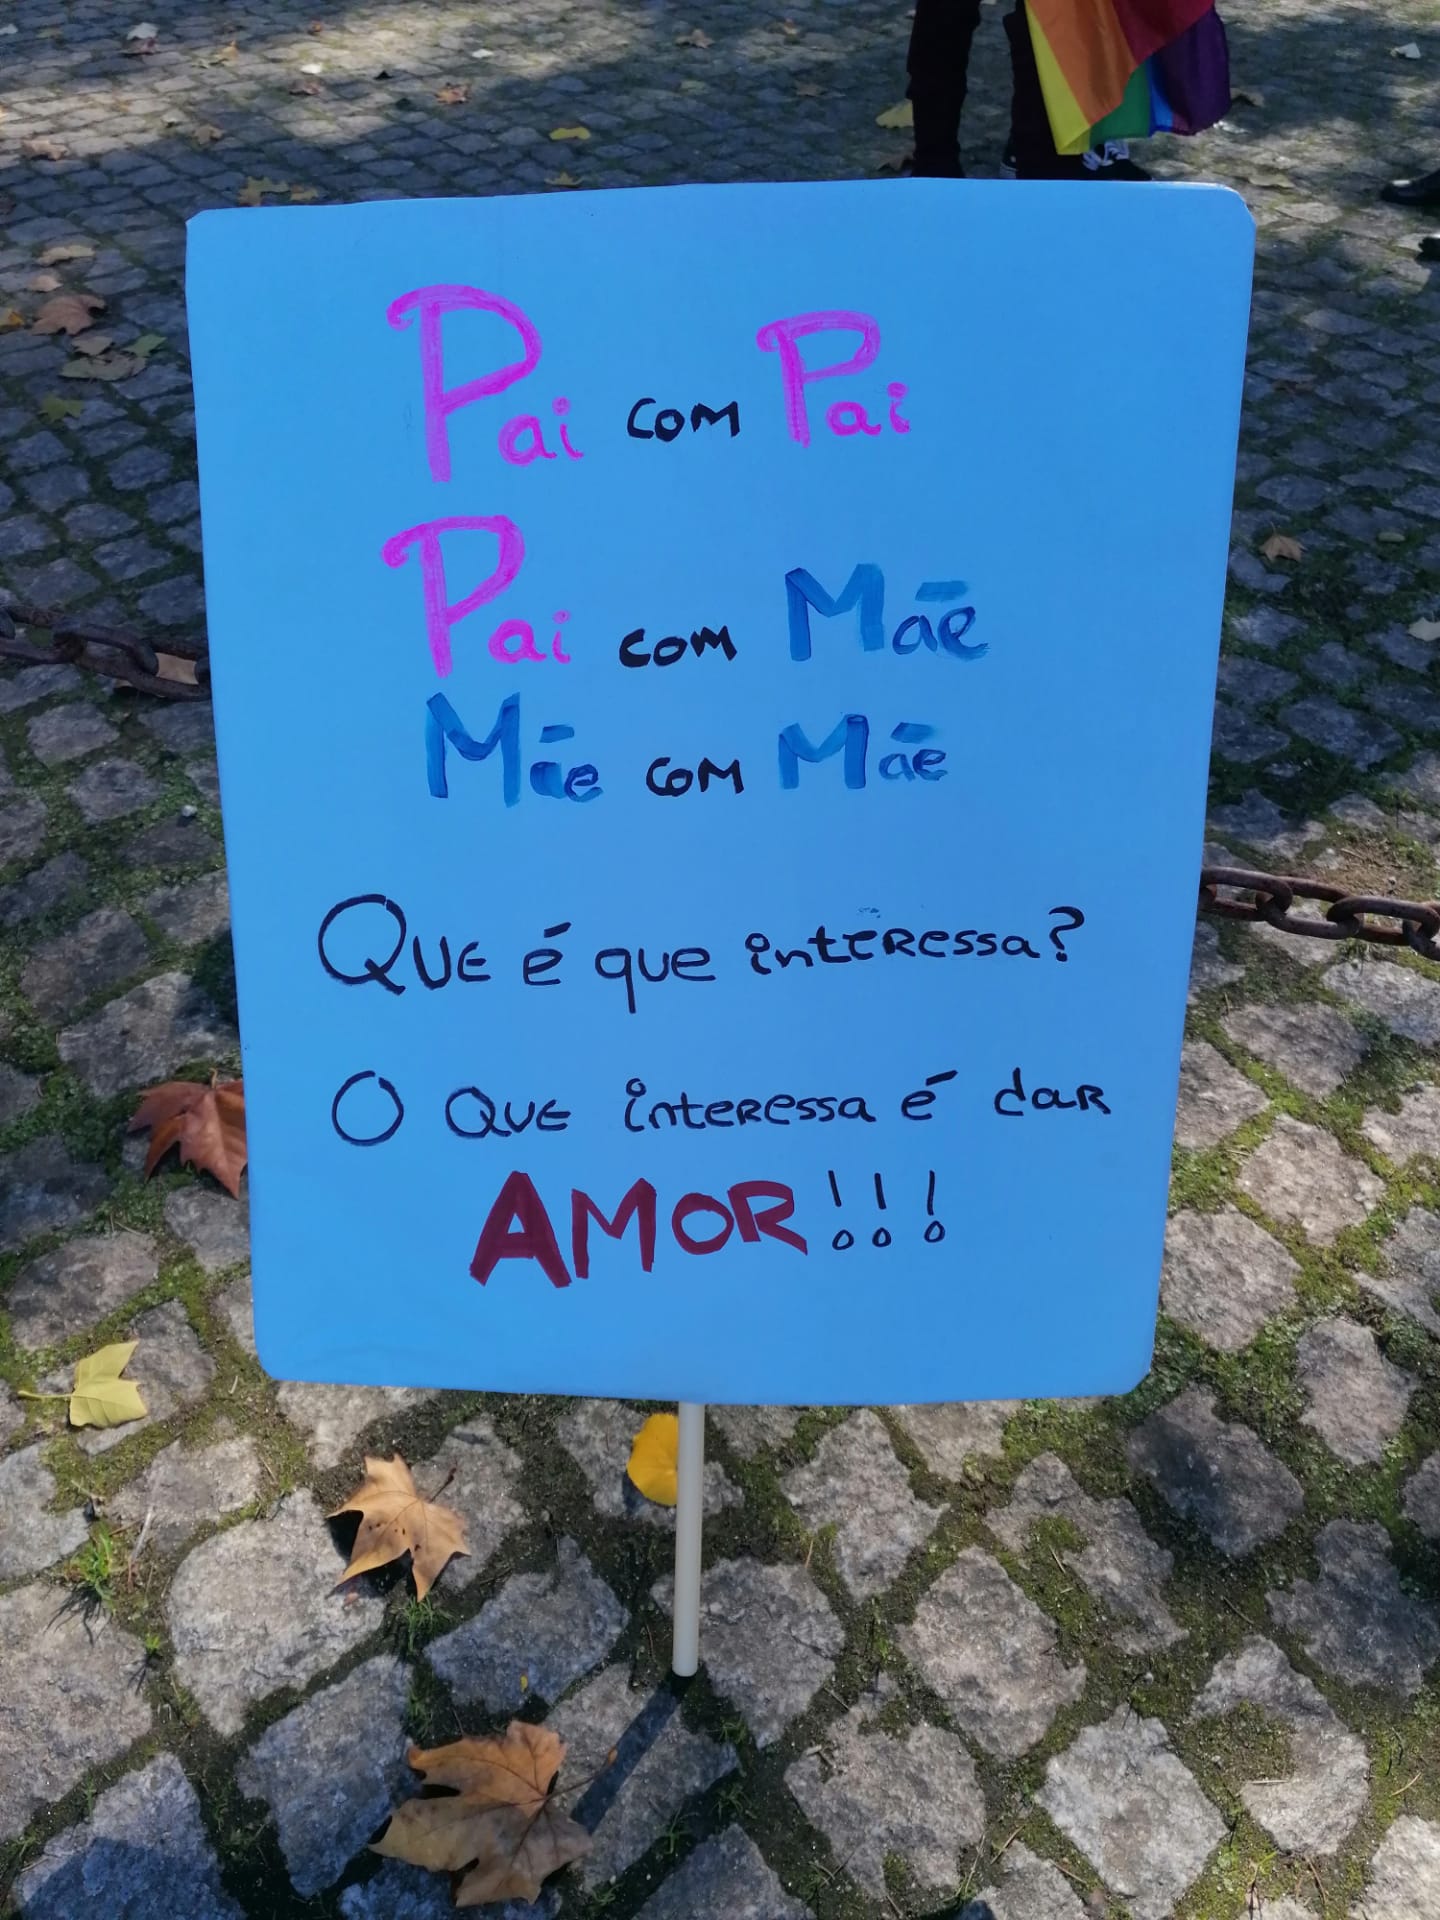 Pai com Pai
Pai com Mãe
Mãe com Mãe
Que é que interessa?
O que interessa é dar
AMOR!!!